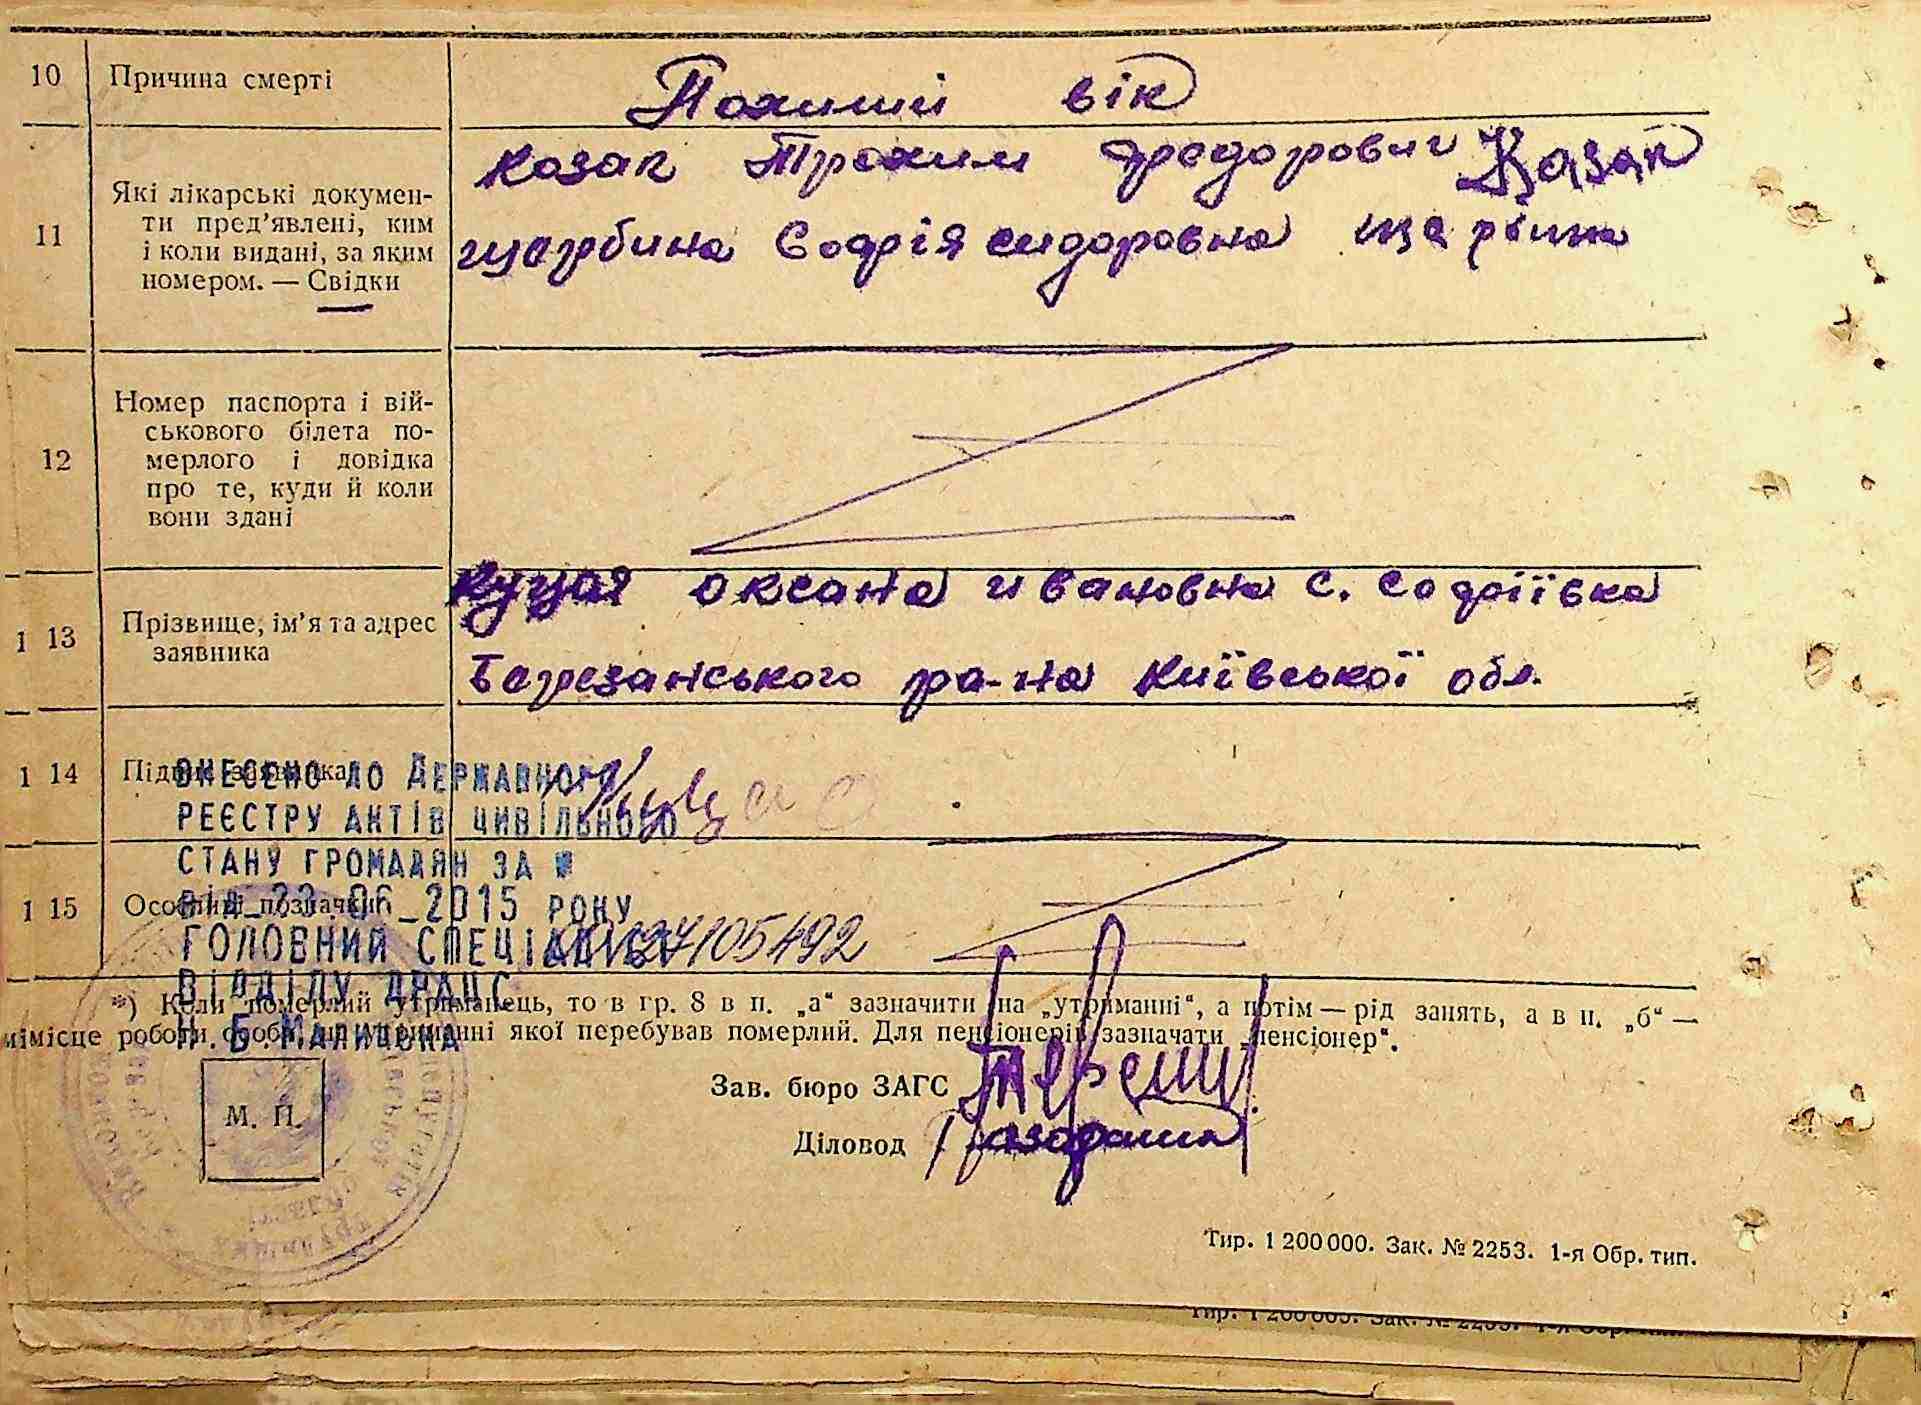 10 Причина смерті Похилий вік
козак Трохим Федорович Козак
11 Які лікарські докумен-
ти пред'явлені, ким
і коли видані, за яким
номером. — Свідки
щербина Софія сидоровна
12 Номер паспорта і вій-
ськового білета по-
мерлого і довідка
про те, куди й коли
вони здані
1 13 Прізвище, ім'я та адрес
заявника
куцая оксана ивановна с. Софіївка
Березанського ра-на Київської обл.
1 14 Підпис заявника Куцая
ВНЕСЕНО ДО ДЕРЖАВНОГО
РЕЄСТРУ АКТІВ ЦИВІЛЬНОГО
СТАНУ ГРОМАДЯН ЗА №
ВІД_23_06_2015 РОКУ
1 15 Особливі позначки
ГОЛОВНИЙ СПЕЦІАЛІСТ
ВІДДІЛУ ДРАЦС
*) Коли померлий утриманець, то в гр. 8 в п. „а“ зазначити „на утриманні“, а потім — рід занять, а в п. „б“ —
місце роботи особи, на утриманні якої перебував померлий. Для пенсіонерів зазначати „пенсіонер“.
Зав. бюро ЗАГС
М. П.
Діловод
Тир. 1 200 000. Зак. № 2253. 1-я Обр. тип.